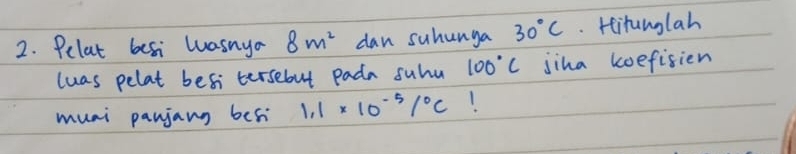 2. Pelat besi luasnya 8 m² dan suhunya 30°C. Hitunglah
luas pelat besi tersebut pada suhu 100°C jika koefisien
muai panjang besi 1,1 × 10⁻⁵/°C !